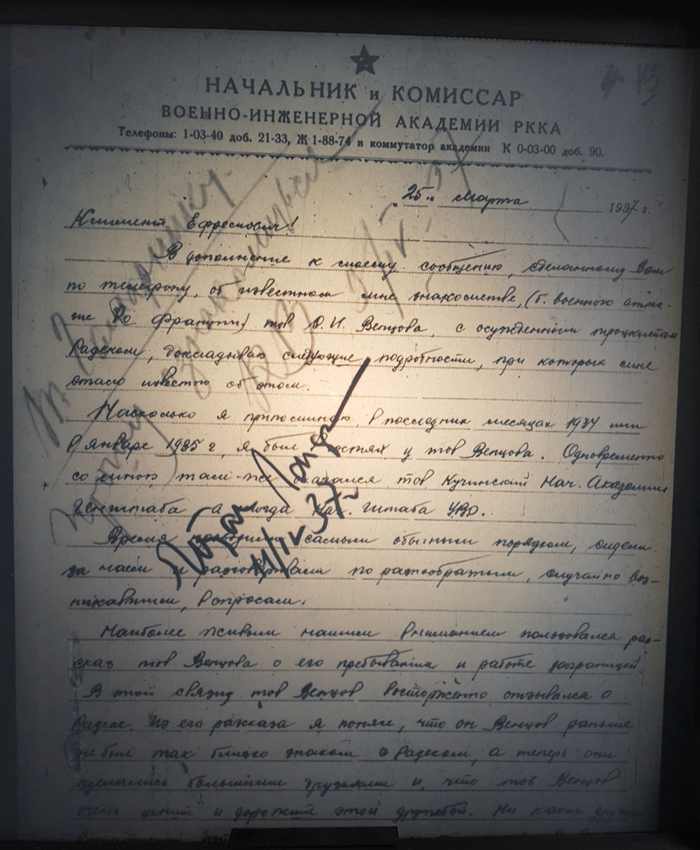 НАЧАЛЬНИК и КОМИССАР
ВОЕННО-ИНЖЕНЕРНОЙ АКАДЕМИИ РККА
Телефоны: 1-03-40 доб. 21-33, Ж 1-88-74 и коммутатор академии К 0-03-00 доб. 90.
25 " марта 1937 г.
Климент Ефремович!
В дополнение к моему сообщению, сделанному Вам
по телефону, об известном мне знакомстве, (б. военного атта-
ше во Франции) тов С.И. Венцова, с осужденным троцкистом
Радеком, докладываю следующие подробности, при которых мне
стало известно об этом.
Насколько я припоминаю, в последних месяцах 1934 или
в январе 1935 г, я был гостях у тов Венцова. Одновременно
со мною там-же оказался тов Кучинский Нач. Академии
Генштаба а тогда штаба УВО.
Время самым обычным порядком, сидели
за чаем и разговаривали по разнобразным, случайно воз-
никавшим, вопросам.
Наиболее живым нашим вниманием пользовался рас-
сказ тов Венцова о его пребывании и работе заграницей
В этой связи тов Венцов восторженно отзывался о
Радеке. Из его рассказа я понял, что он Венцов раньше
не был так близко знаком с Радеком, а теперь они
сделались большими друзьями и, что тов Венцов
очень ценит и дорожит этой дружбой. Ни каких